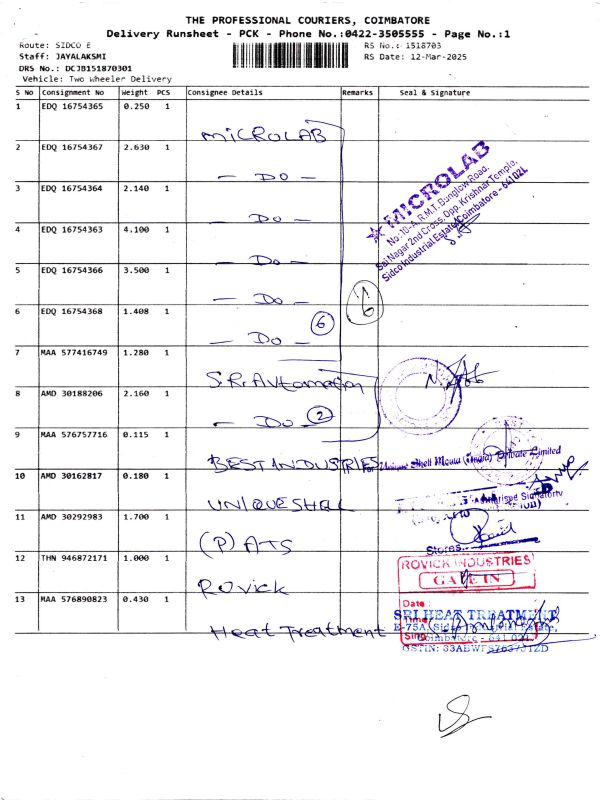 THE PROFESSIONAL COURIERS, COIMBATORE
Delivery Runsheet - PCK - Phone No.:0422-3505555 - Page No.:1
Route: SIDCO E
RS No.: 1518703
Staff: JAYALAKSMI
RS Date: 12-Mar-2025
DRS No.: DCJB151870301
Vehicle: Two Wheeler Delivery
S No Consignment No Weight PCS Consignee Details Remarks Seal & Signature
1 EDQ 16754365 0.250 1
MICROLAB
2 EDQ 16754367 2.630 1
- DO -
3 EDQ 16754364 2.140 1
- Do -
4 EDQ 16754363 4.100 1
- Do -
5 EDQ 16754366 3.500 1
- Do -
6 EDQ 16754368 1.408 1
- Do - 6
MICROLAB
No:10-A, R.M.T. Bunglow Road,
Sai Nagar 2nd Cross, Opp. Krishnar Temple,
Sidco Industrial Estate, Coimbatore - 641021.
7 MAA 577416749 1.280 1
S.R. Automation
8 AMD 30188206 2.160 1
- Do - 2
9 MAA 576757716 0.115 1
BEST INDUSTRIES
For Unique Shell Mould (India) Private Limited
10 AMD 30162817 0.180 1
UNIQUE SHELL
Authorised Signatory
11 AMD 30292983 1.700 1
(P) ATS
Stores
12 THN 946872171 1.000 1
Rovick
ROVICK INDUSTRIES
GATE IN
13 MAA 576890823 0.430 1
Heat Treatment
Date
Time
Sing
SRI HEAT TREATMENT
Coimbatore - 641 021.